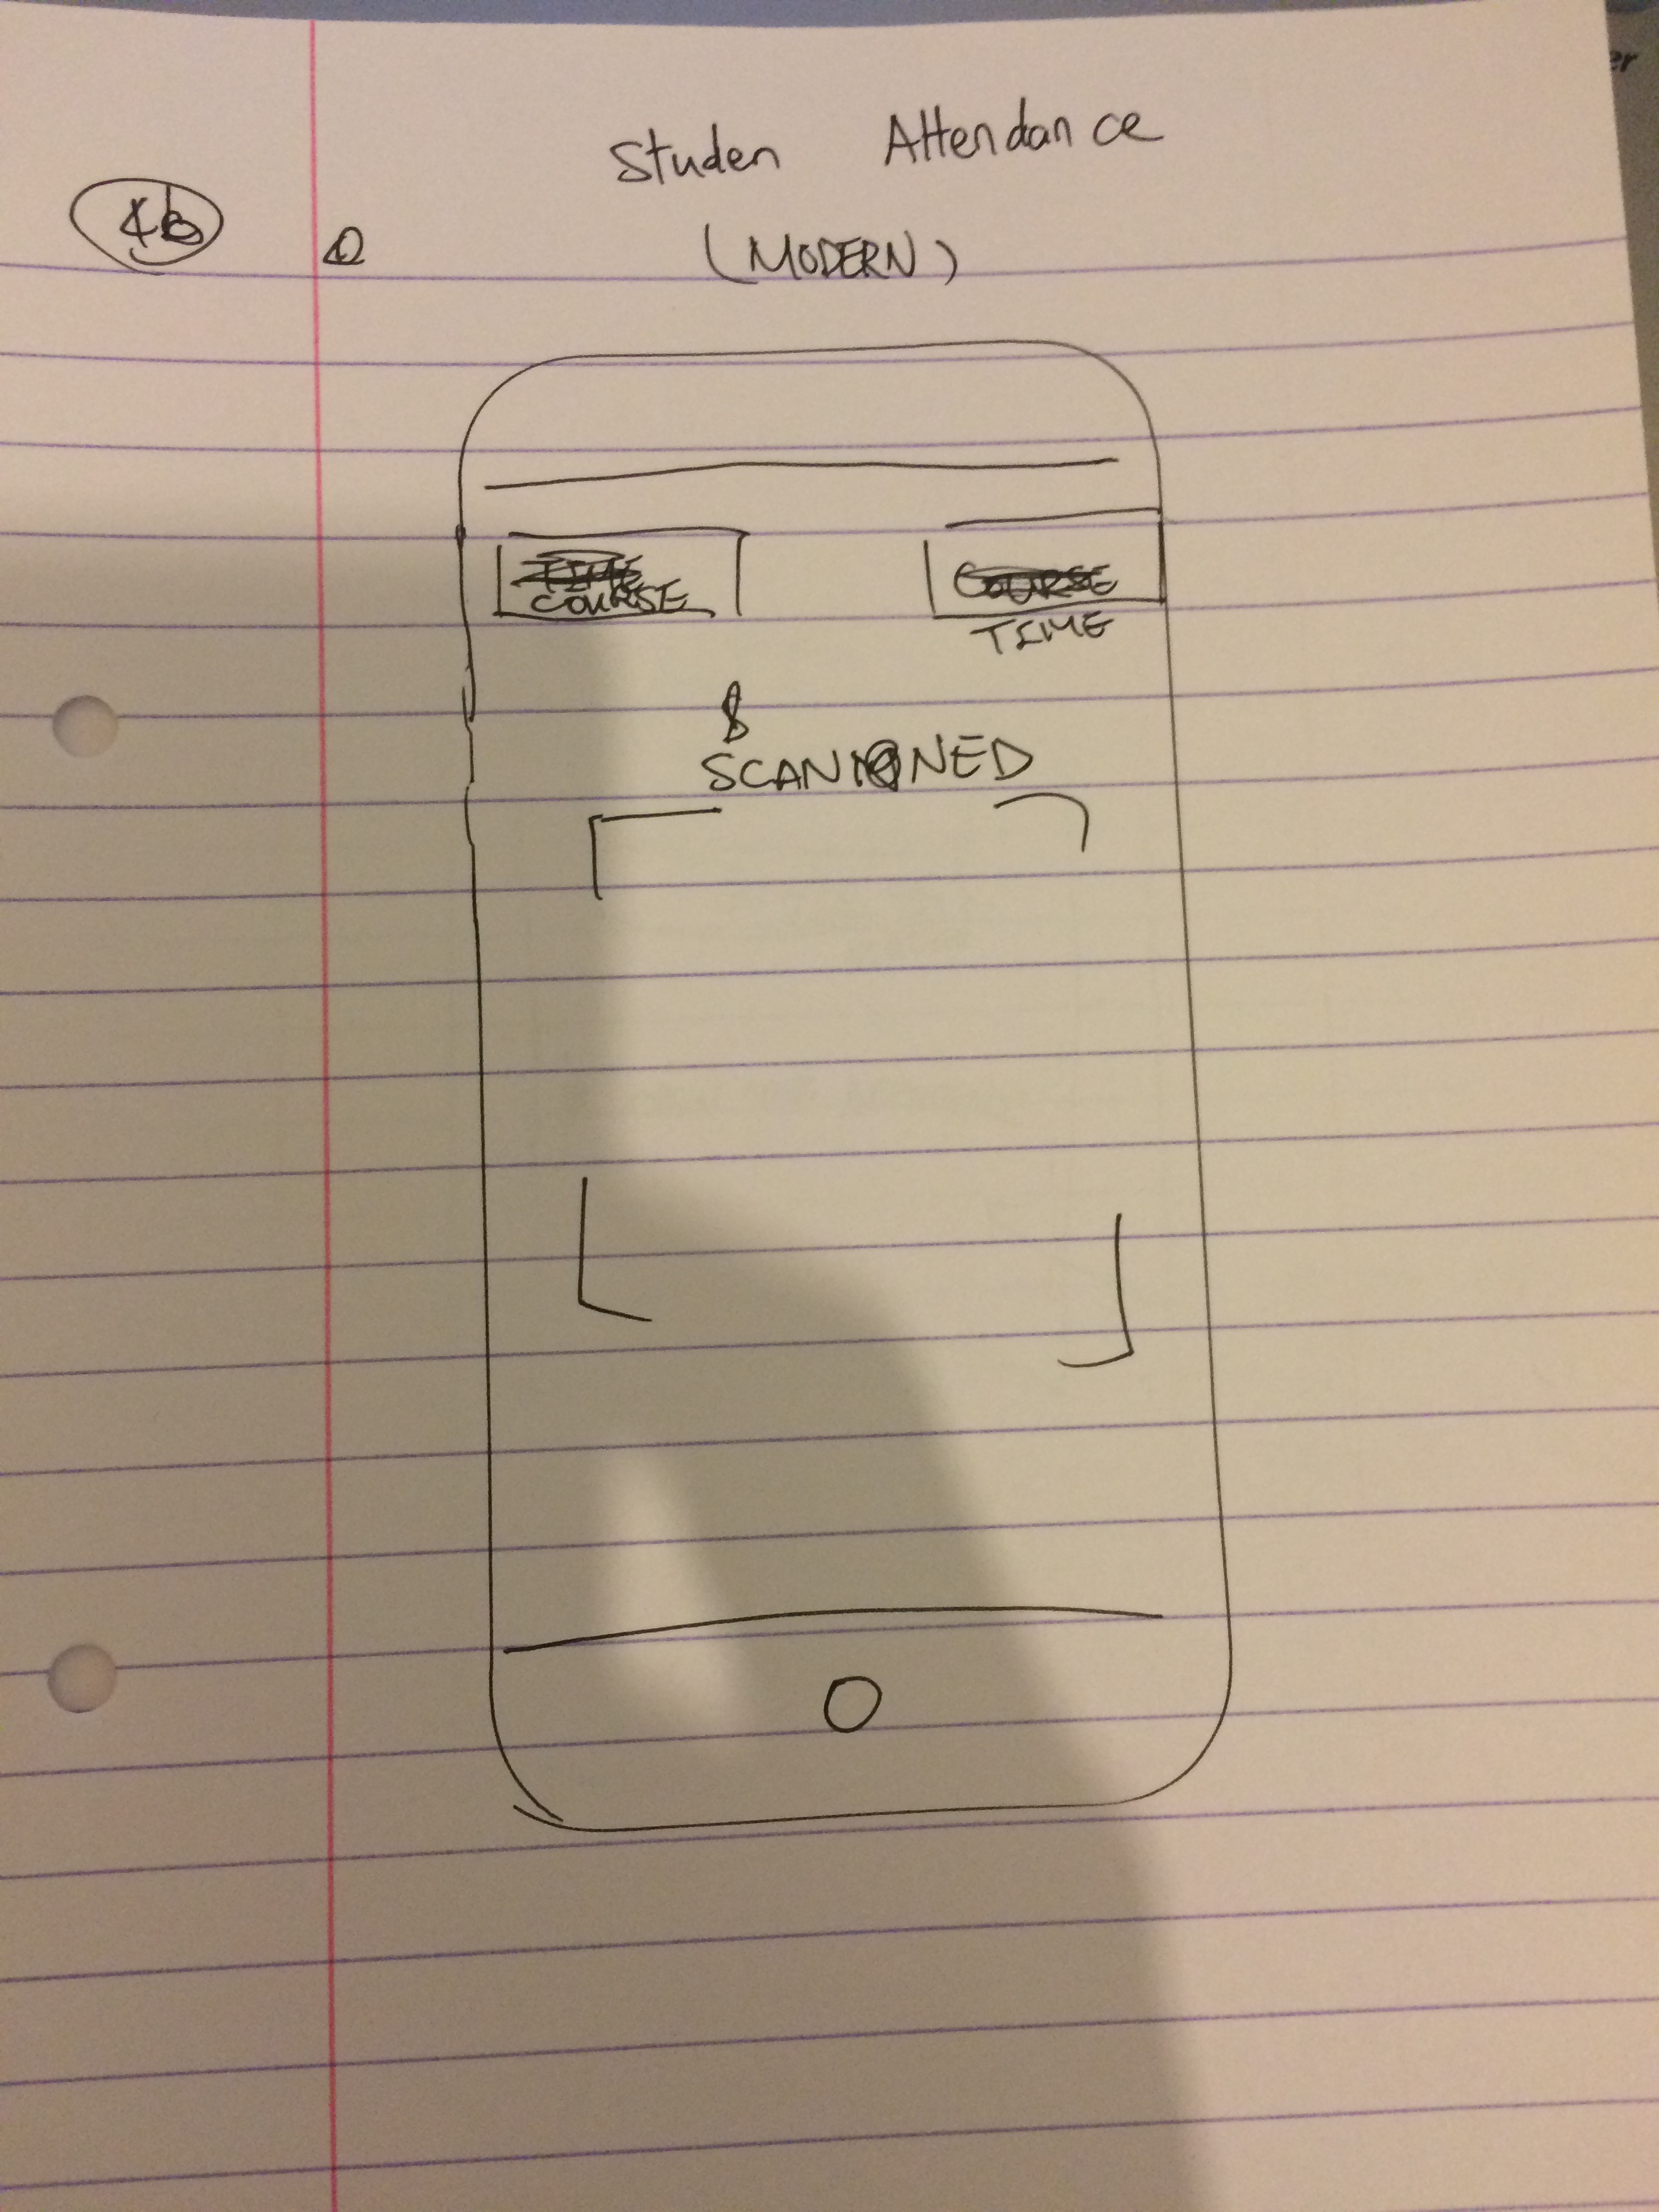 Studen Attendance
4b
(MODERN)
TIME COURSE
COURSE
TIME
SCANNED
er